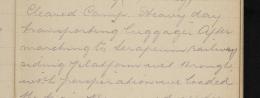 Cleared Camp. Heavy day
transporting luggage. After
marching to Serapeum Railway
siding & platform wet through
with perspiration we loaded